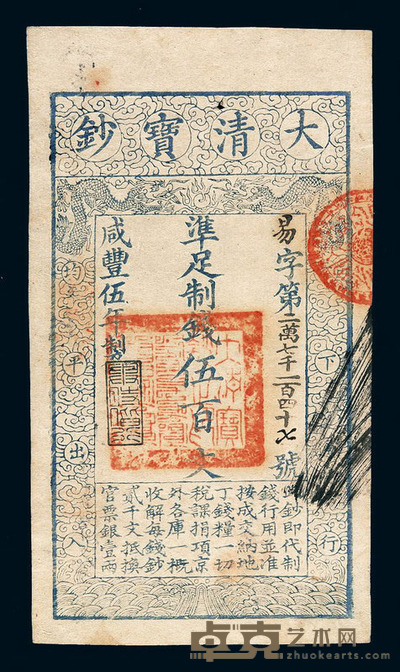 大清寶鈔
易字第二萬七千二百四十號
準足制錢伍百文
咸豐伍年製
下
行
均平出入
此鈔即代制
錢行用並准
按成交納地
丁錢糧一切
稅課捐項京
外各庫一概
收解每錢鈔
貳千文抵換
官票銀壹兩
卓克艺术网
zhuokearts.com